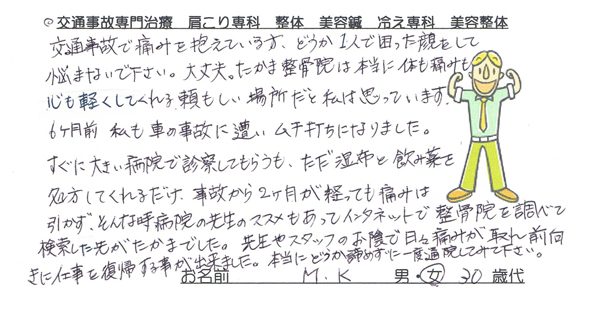 ◎交通事故専門治療 肩こり専科 整体 美容鍼 冷え専科 美容整体
交通事故で痛みを抱えている方、どうか1人で困った顔をして
悩まないで下さい。大丈夫。たかま整骨院は本当に体も痛みも
心も軽くしてくれる頼もしい場所だと私は思っています。
6ヶ月前 私も車の事故に遭い ムチ打ちになりました。
すぐに大きい病院で診察してもらうも、ただ湿布と飲み薬を
処方してくれるだけ、事故から2ヶ月が経っても痛みは
引かず、そんな時病院の先生のススメもあってインタネットで整骨院を調べて
検索した先がたかまでした。先生やスタッフのお陰で日々痛みが取れ前向
きに仕事を復帰する事が出来ました。本当にどうか諦めずに一度通院してみて下さい。
お名前 M.K 男・女 30 歳代